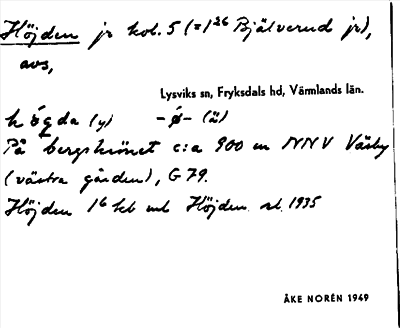 Höjden jr kol. 5 (= 1²⁶ Bjälverud jr),
avs,
Lysviks sn, Fryksdals hd, Värmlands län.
högda (y) -ǿ- (ä)
På bergskrönet c:a 900 m NNV Väsby
(västra gården), G 79.
Höjden 1⁶ kb Höjden sl. 1935
ÅKE NORÉN 1949